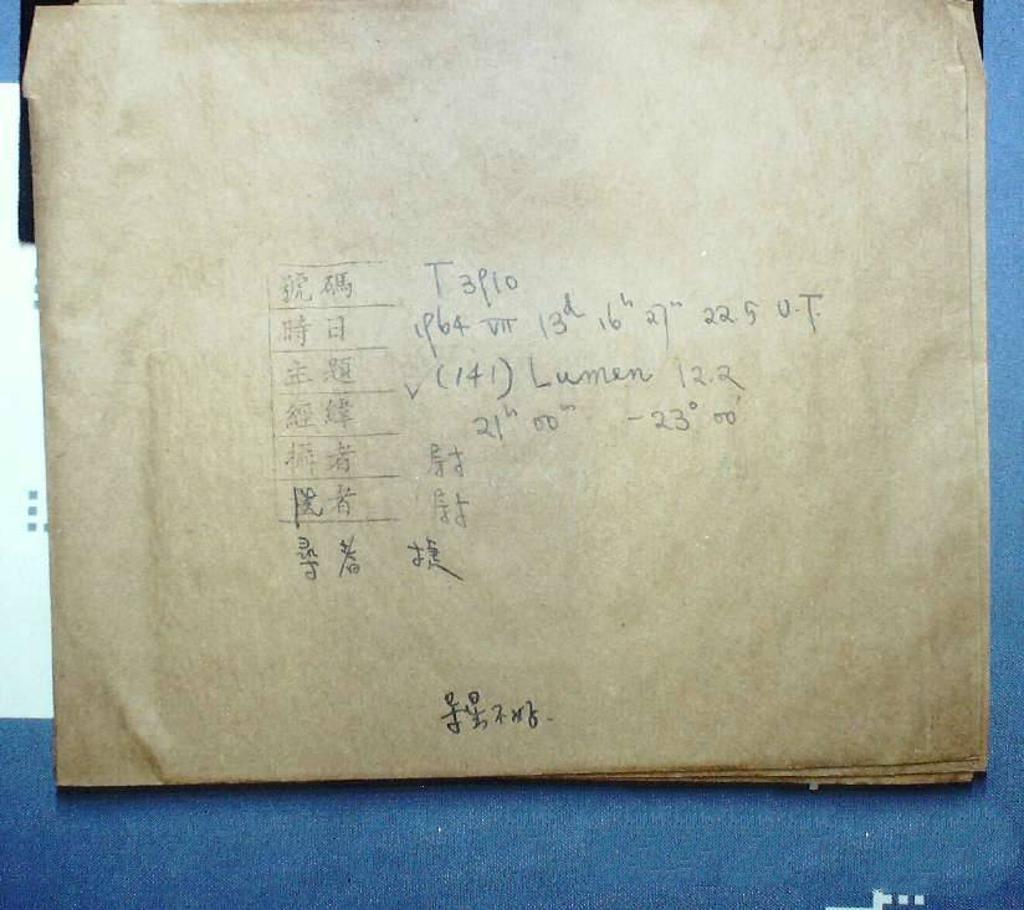 號碼 T 3910
時日 1964 VII 13d 16h 27m 22.5 U.T.
主題 ✓ (141) Lumen 12.2
經緯 21h 00m -23° 00'
攝者 尉
洗者 尉
尋者 捷
导星不好.